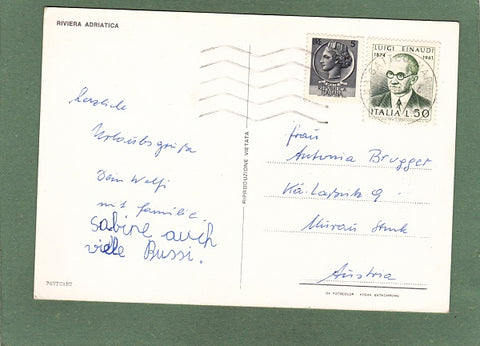 RIVIERA ADRIATICA
Herzliche
Urlaubsgrüße
Dein Wolfi
mit Familie.
Sabine auch
viele Bussi.
POSTCART
RIPRODUZIONE VIETATA
5
LUIGI EINAUDI
1874 1961
ITALIA L.50
Frau
Antonia Brugger
9
Murau Stmk
Austria
FOTOCOLOR KODAK EKTACHROME